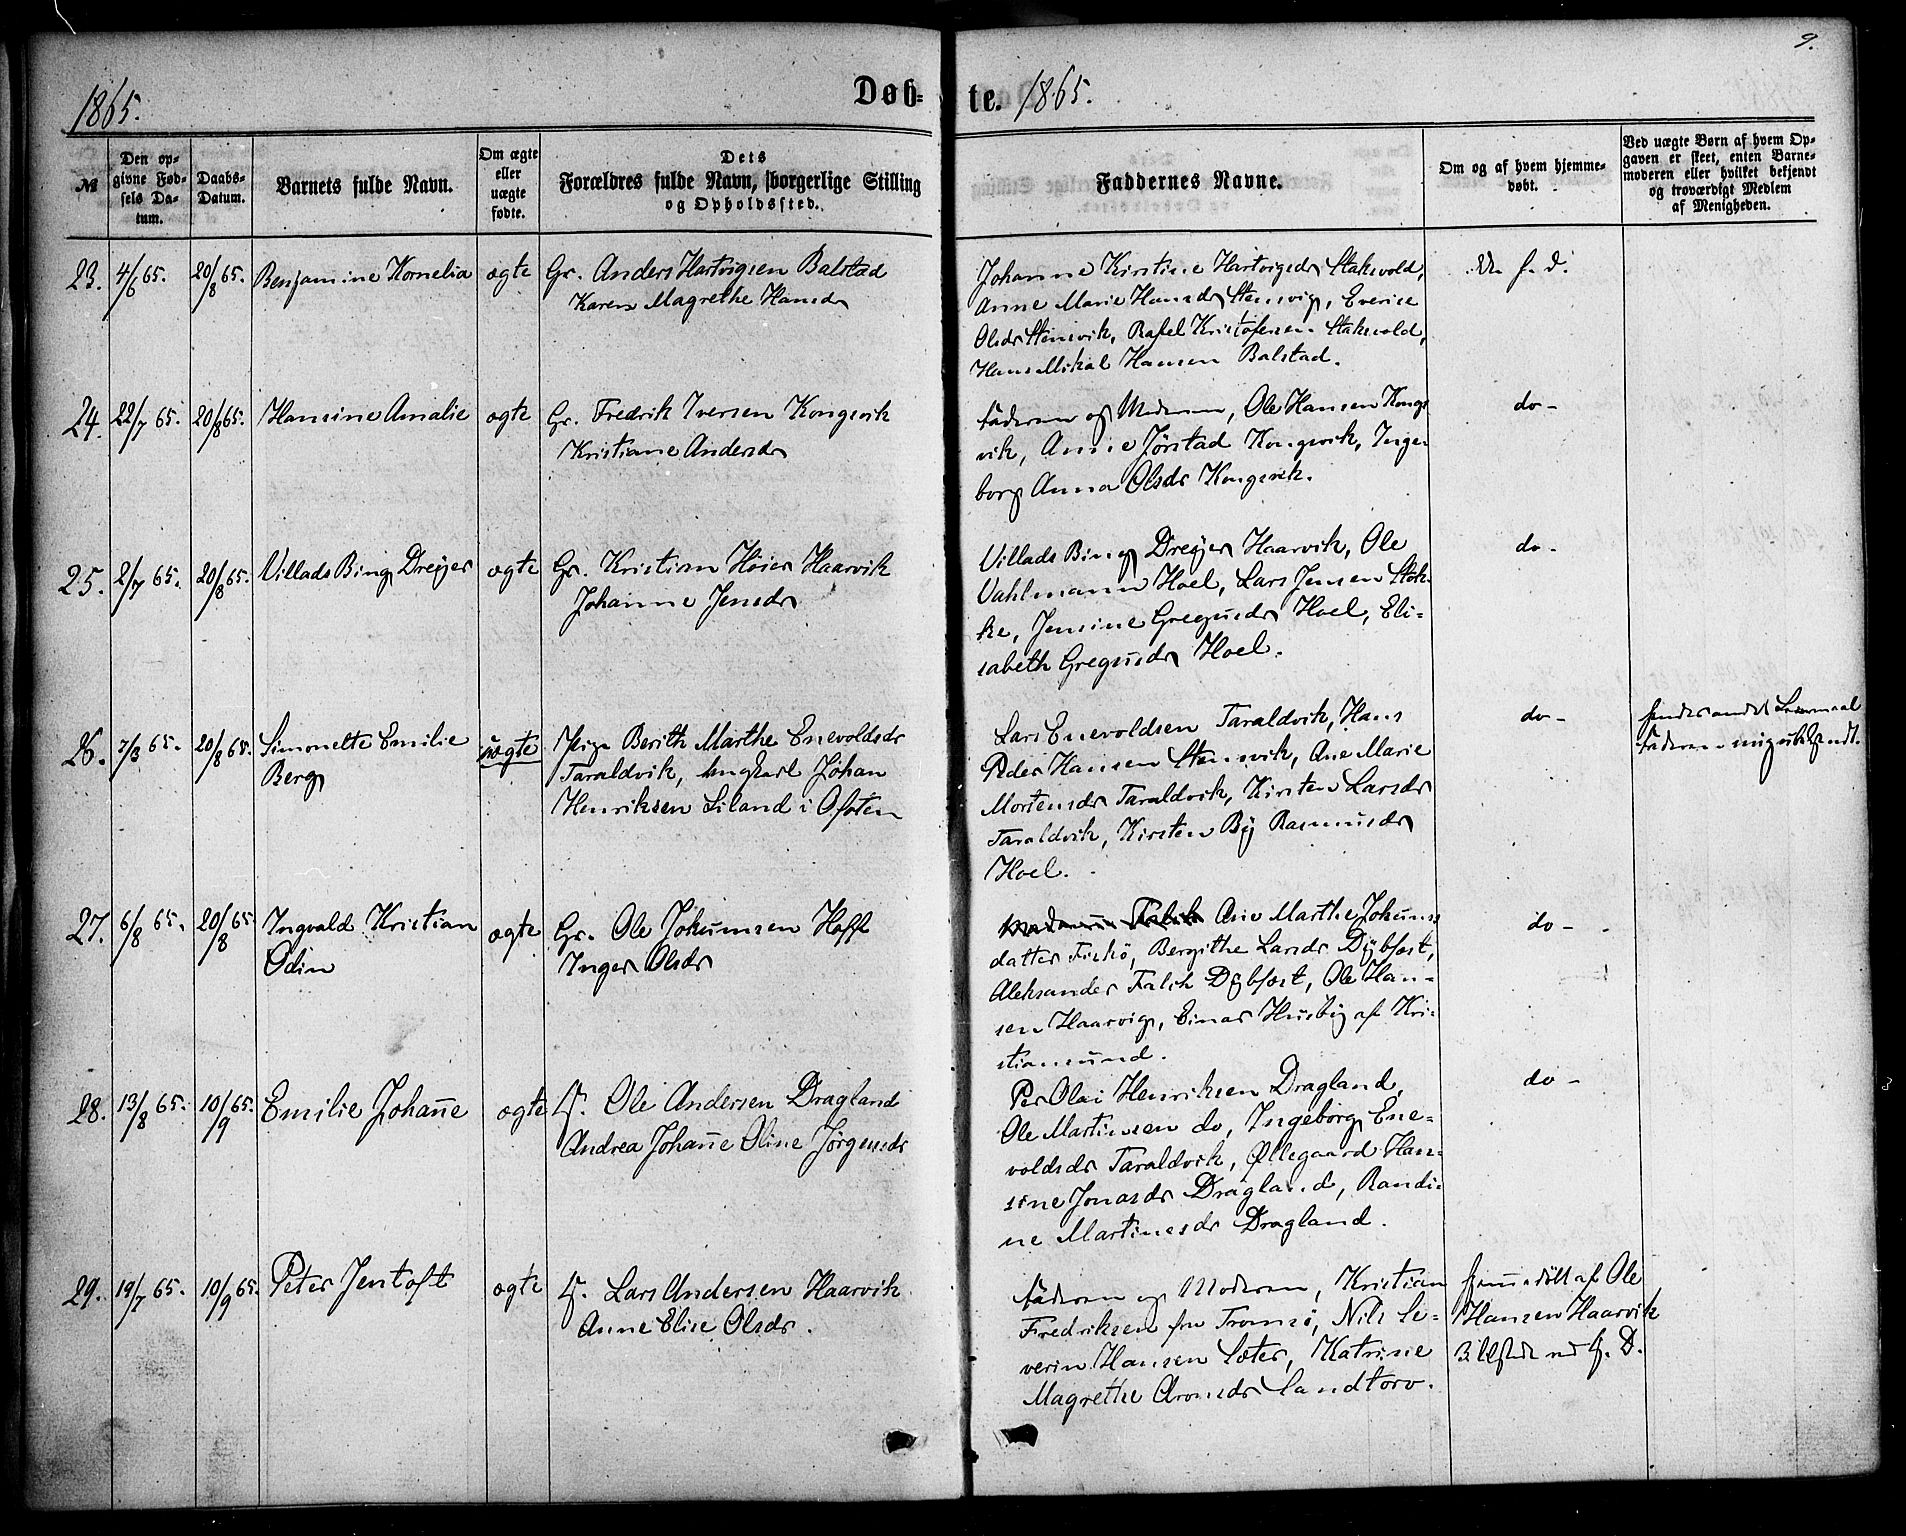 9.
1865. Døb- te. 1865.
№
Den op-
givne Fød-
sels Da-
tum.
Daabs-
Datum.
Barnets fulde Navn.
Om ægte
eller
uægte
fødte.
Dets
Forældres fulde Navn, borgerlige Stilling
og Opholdssted.
Faddernes Navne.
Om og af hvem hjemme-
døbt.
Ved uægte Børn af hvem Op-
gaven er skeet, enten Barne-
moderen eller hvilket bekjendt
og troværdigt Medlem
af Menigheden.
23. 4/6 65. 20/8 65. Benjamine Kornelia ægte Gr. Anders Hartvigsen Balstad
Karen Magrethe Hansdr
Johanne Kirstine Hartvigsdr Stakvold,
Anne Marie Hansdr Stensvig, Everice
Olsdr Stensvik, Rafel Kristofersen Stakvold,
Hans Mikal Hansen Balstad.
f. d.
24. 22/7 65. 20/8 65. Hansine Amalie ægte Gr. Fredrik Iversen Kongsvik
Kristiane Andersdr
Faderen og Moderen, Ole Hansen Kongs
vik, Anne Jørstad Kongsvik, Inge-
borg Anna Olsdr Kongsvik.
do-
25. 2/7 65. 20/8 65. Villads Bing Dreyer ægte Gr. Kristian Høier Haarvik
Johanne Jensdr
Villads Bing Dreyer Haarvik, Ole
Vahlmann Hoel, Lars Jensen Stok-
ke, Jensine Gregusdr Hoel, Eli-
sabeth Gregusdr Hoel.
do-
26. 7/3 65. 20/8 65. Simonette Emilie
Berg
uægte
Pige Berith Marthe Enevoldsdr
Taraldvik, Ungkarl Johan
Henriksen Liland i Ofoten
Lars Enevoldsen Taraldvik, Hans
Peder Hansen Stensvik, Ane Marie
Mortensdr Taraldvik, Kirsten Larsdr
Taraldvik, Kirsten By Rasmusdr
Hoel.
do-
hendes andet Leiermaal
Faderens mig ubekjendt.
27. 6/8 65. 20/8 65. Ingvald Kristian
Odin
ægte Gr. Ole Johannsen Hoff
Inger Olsdr
Ane Marthe Johanns
datter Fiskø, Bergithe Larsdr Dybfest,
Aleksander Falch Dybfest, Ole Han-
sen Haarvig, Einar Husby af Kri-
stiansund.
do-
28. 13/8 65. 10/9 65. Emilie Johanne ægte If. Ole Andersen Dragland
Andrea Johanne Oline Jørgensdr
Per Olai Henriksen Dragland,
Ole Martinsen do, Ingeborg Ene-
voldsdr Taraldvik, Øllegaard Han-
sine Jonasdr Dragland, Randi-
ne Martinesdr Dragland.
do-
29. 19/7 65. 10/9 65. Peter Jentoft ægte If. Lars Andersen Haarvik
Anne Elise Olsdr.
Faderen og Moderen, Kristian
Fredriksen fra Tromsø, Nils Se-
verin Hansen Sæter, Katrine
Magrethe Aronsdr Sandtorv.
hjemmedøbt af Ole
Hansen Haarvik